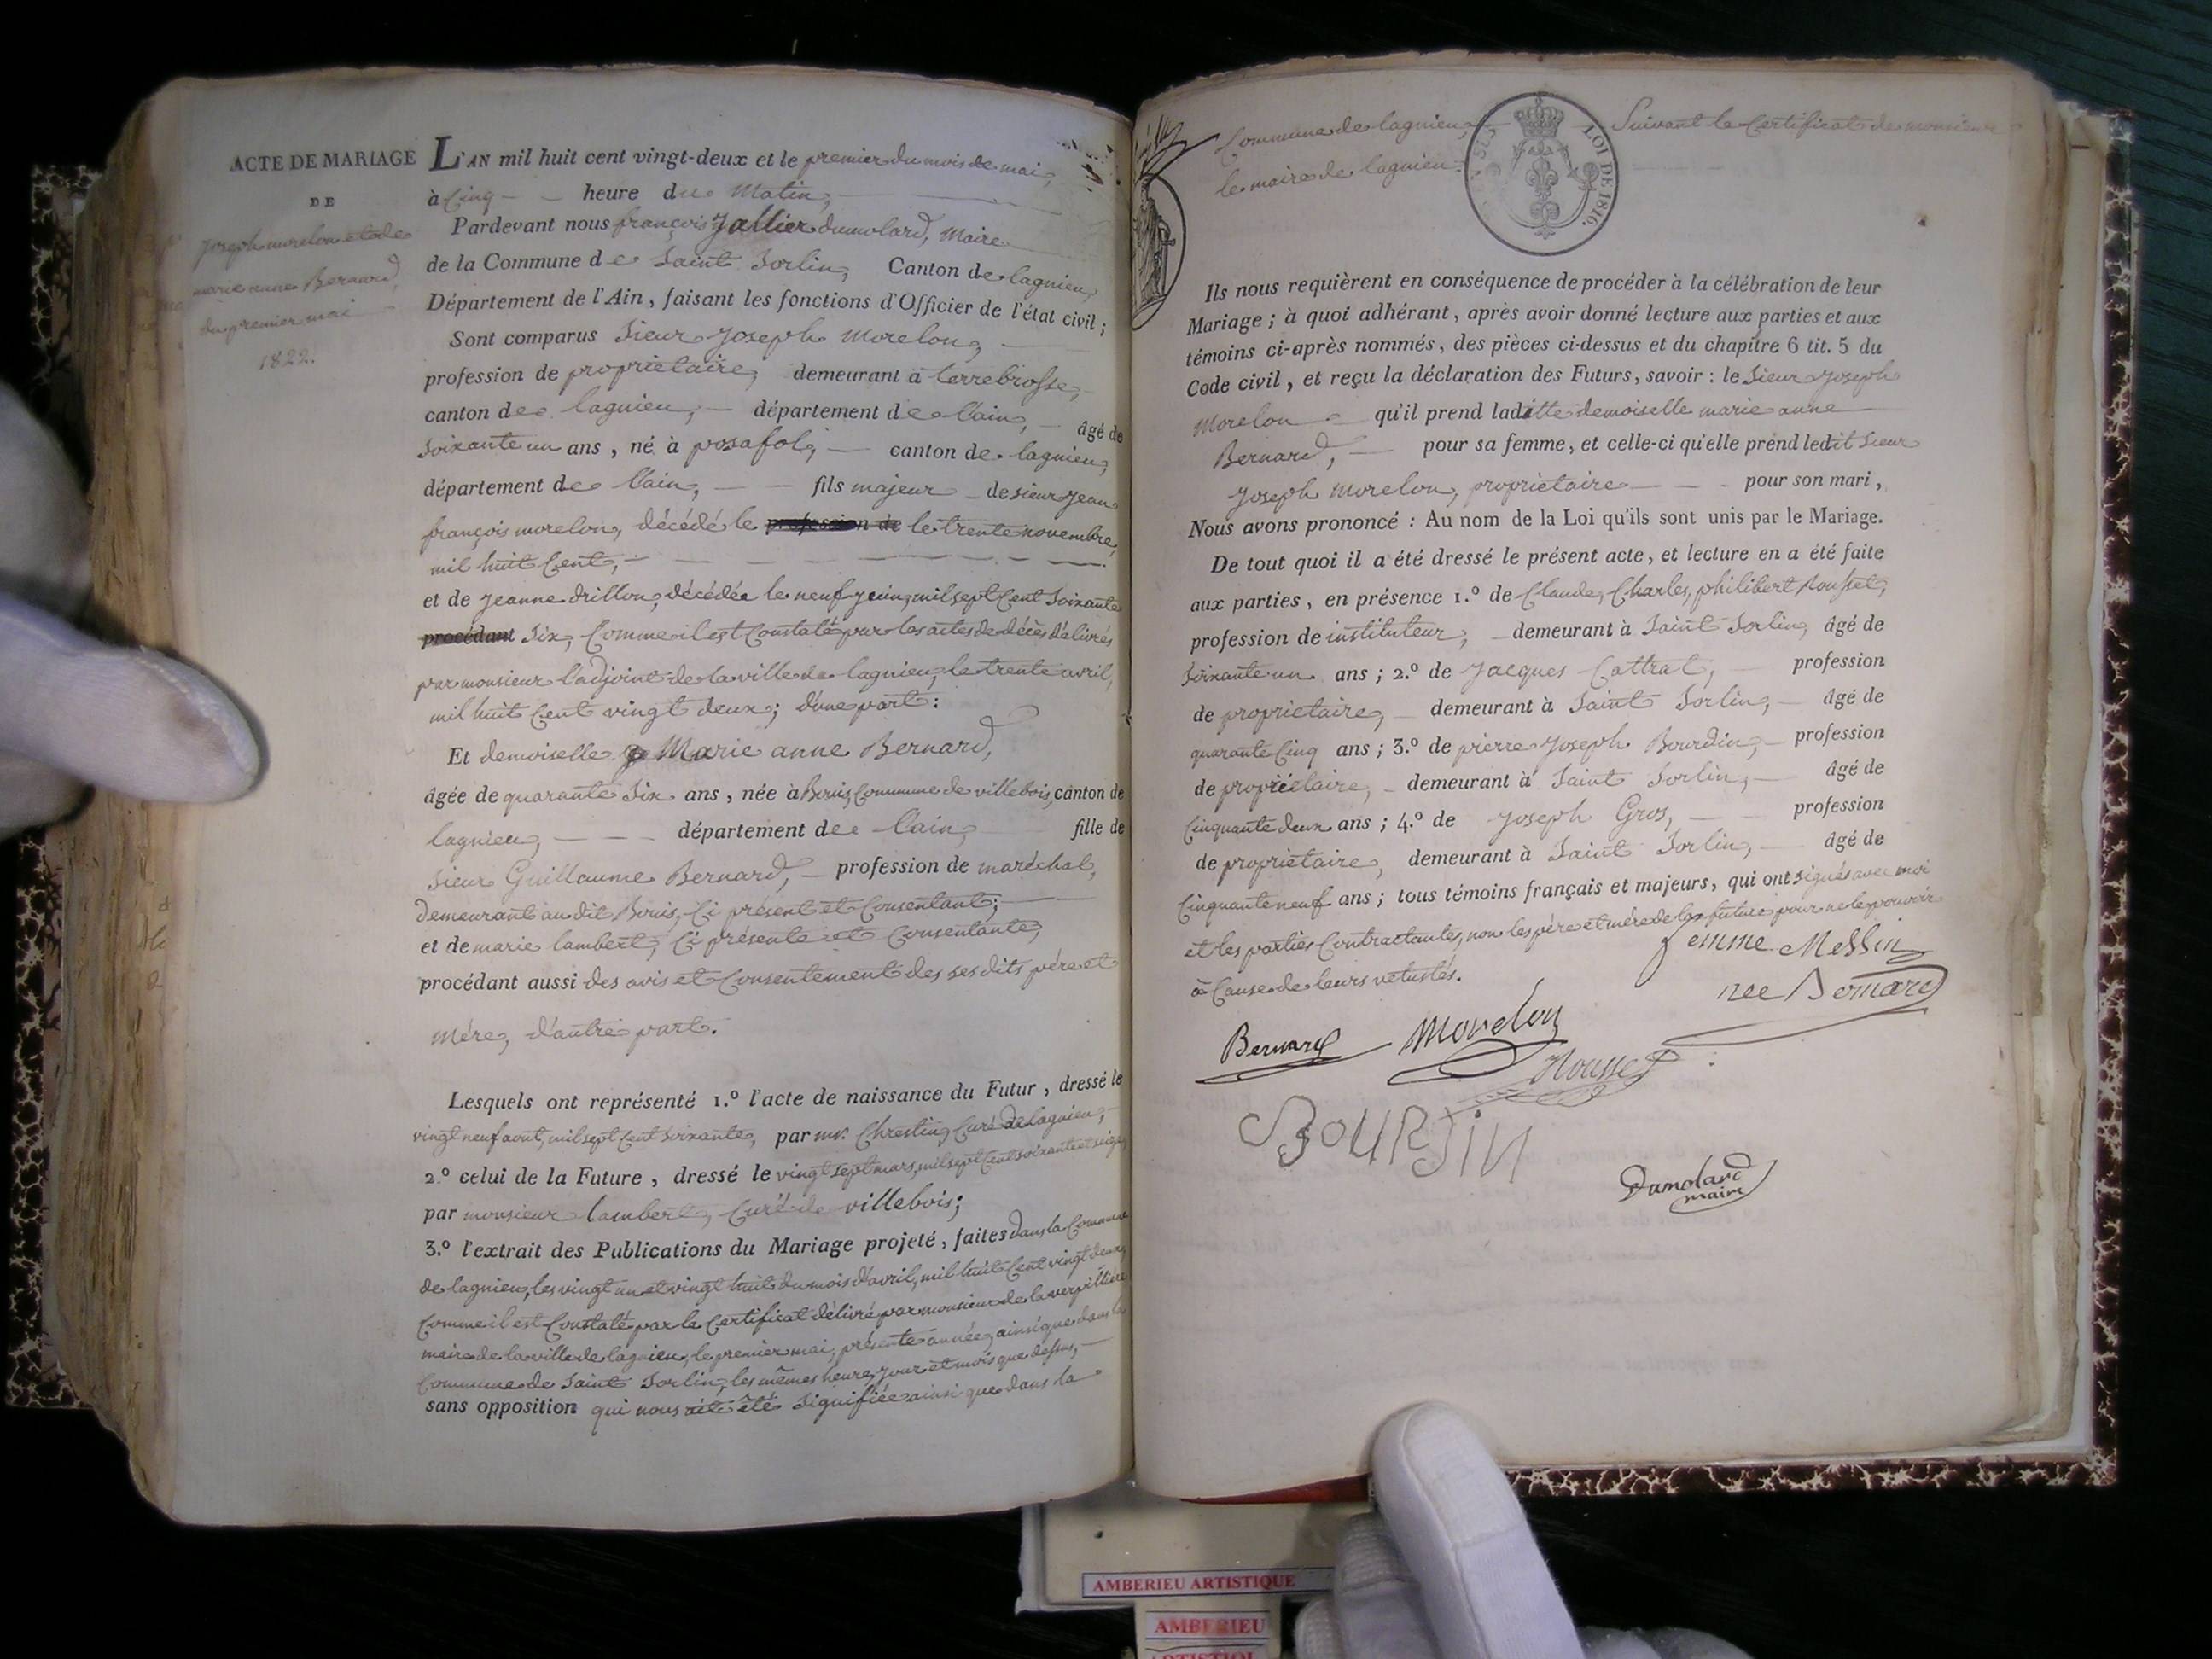 ACTE DE MARIAGE
DE
Joseph morelon et de
marie anne Bernard,
du premier mai
1822.
L'AN mil huit cent vingt-deux et le premier du mois de mai,
à Cinq heure du Matin,
Pardevant nous françois Jallier dumolard, Maire
de la Commune de Saint Sorlin, Canton de lagnieu,
Département de l'Ain, faisant les fonctions d'Officier de l'état civil ;
Sont comparus Sieur Joseph Morelon,
profession de propriétaire, demeurant à terrebrosse,
canton de lagnieu, département de l'ain, âgé de
Soixante un ans, né à posafol, canton de lagnieu,
département de l'ain, fils majeur de sieur Jean
françois morelon, décédé le profession de le trente novembre
mil huit Cent,
et de Jeanne drillon, décédée le neuf juin, mil sept Cent Soixante
procédant Six, Comme il est Constaté par les actes de décès délivrés
par monsieur l'adjoint de la ville de lagnieu, le trente avril,
mil huit Cent vingt deux ; d'une part :
Et demoiselle Marie anne Bernard,
âgée de quarante Six ans, née à Bouis, Commune de villebois, canton de
lagnieu, département de l'ain, fille de
Sieur Guillaume Bernard, profession de maréchal,
demeurant au dit Bouis, Ci présent et Consentant ;
et de marie lambert, Ci présente et Consentante,
procédant aussi des avis et Consentement des ses dits père et
Mère, d'autre part.
Lesquels ont représenté 1.º l'acte de naissance du Futur, dressé le
vingt neuf aout, mil sept Cent soixante, par mr. Chrestin, Curé de lagnieu,
2.º celui de la Future, dressé le vingt sept mars, mil sept Cent soixante et seize,
par monsieur lambert, Curé de villebois ;
3.º l'extrait des Publications du Mariage projeté, faites dans la Commune
de lagnieu, les vingt un et vingt huit du mois d'avril, mil huit Cent vingt deux,
Comme il est Constaté par le Certificat délivré par monsieur de laverpillière
maire de la ville de lagnieu, le premier mai, présente année, ainsi que dans la
Commune de Saint Sorlin, les mêmes heure, jour et mois que dessus,
sans opposition qui nous été Signifiée ainsi que dans la
Commune de lagnieu, Suivant le Certificat de monsieur
le maire de lagnieu.
LOI DE 1816.
Ils nous requièrent en conséquence de procéder à la célébration de leur
Mariage ; à quoi adhérant, après avoir donné lecture aux parties et aux
témoins ci-après nommés, des pièces ci-dessus et du chapitre 6 tit. 5 du
Code civil, et reçu la déclaration des Futurs, savoir : le Sieur Joseph
Morelon qu'il prend laditte demoiselle marie anne
Bernard, pour sa femme, et celle-ci qu'elle prend ledit Sieur
Joseph Morelon, propriétaire pour son mari,
Nous avons prononcé : Au nom de la Loi qu'ils sont unis par le Mariage.
De tout quoi il a été dressé le présent acte, et lecture en a été faite
aux parties, en présence 1.º de Claude, Charles, philibert Rousset,
profession de instituteur, demeurant à Saint Sorlin, âgé de
Soixante un ans ; 2.º de Jacques Cattral, profession
de propriétaire, demeurant à Saint Sorlin, âgé de
quarante Cinq ans ; 3.º de pierre Joseph Bourdin, profession
de propriétaire, demeurant à Saint Sorlin, âgé de
Cinquante deux ans ; 4.º de Joseph Gros, profession
de propriétaire, demeurant à Saint Sorlin, âgé de
Cinquante neuf ans ; tous témoins français et majeurs, qui ont signés avec moi
et les parties Contractantes, non les père et mère de la future pour ne le pouvoir
à Cause de leurs vetustés.
femme Mellin
née Bernard
Bernard Morelon
Rousset
BOURDIN
Dumolard
maire
AMBERIEU ARTISTIQUE
AMBERIEU